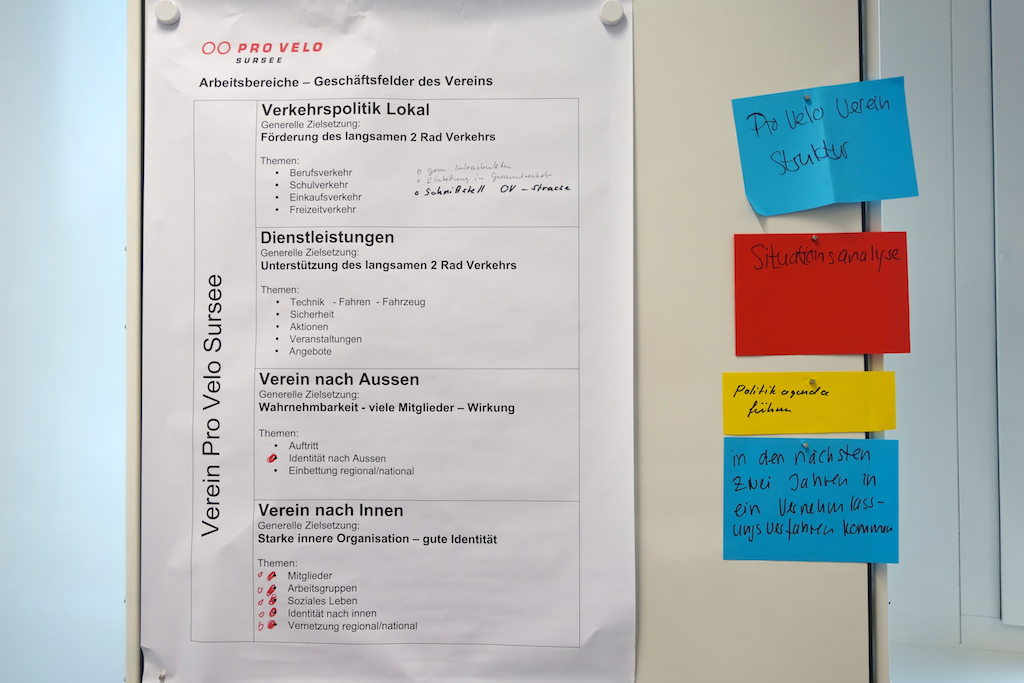 PRO VELO
SURSEE
Arbeitsbereiche – Geschäftsfelder des Vereins
Verein Pro Velo Sursee
Verkehrspolitik Lokal
Generelle Zielsetzung:
Förderung des langsamen 2 Rad Verkehrs
Themen:
• Berufsverkehr
• Schulverkehr
• Einkaufsverkehr
• Freizeitverkehr
Schnittstell ÖV - Strasse
Dienstleistungen
Generelle Zielsetzung:
Unterstützung des langsamen 2 Rad Verkehrs
Themen:
• Technik - Fahren - Fahrzeug
• Sicherheit
• Aktionen
• Veranstaltungen
• Angebote
Verein nach Aussen
Generelle Zielsetzung:
Wahrnehmbarkeit - viele Mitglieder – Wirkung
Themen:
• Auftritt
Identität nach Aussen
• Einbettung regional/national
Verein nach Innen
Generelle Zielsetzung:
Starke innere Organisation – gute Identität
Themen:
Mitglieder
Arbeitsgruppen
Soziales Leben
Identität nach innen
Vernetzung regional/national
Pro Velo Verein
Struktur
Situationsanalyse
Politikagenda
führen
in den nächsten
zwei Jahren in
ein Vernehmlass-
ungsverfahren kommen